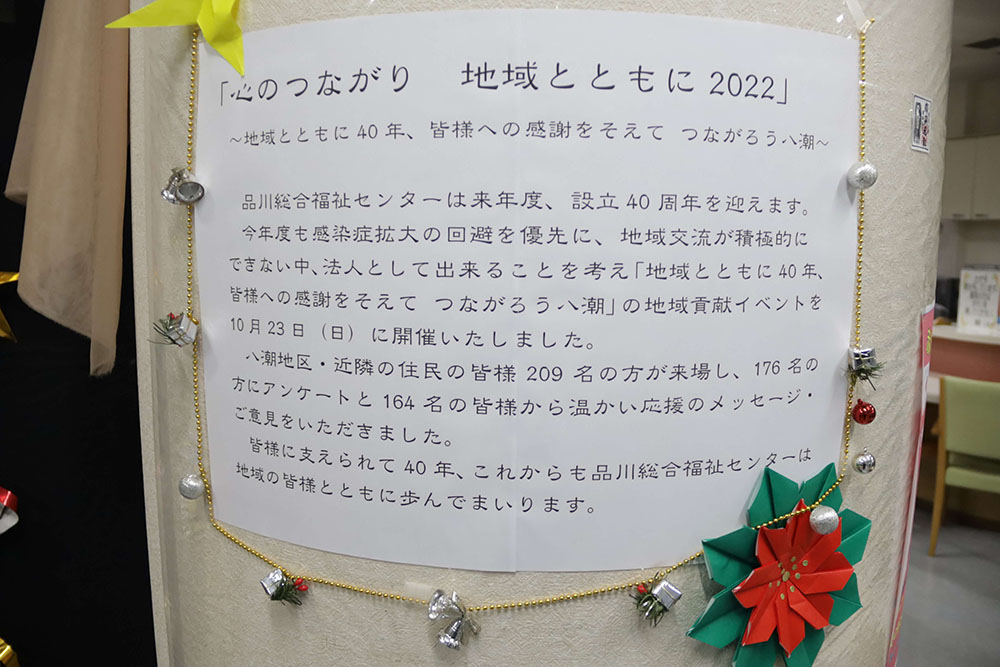 「心のつながり　地域とともに2022」
～地域とともに40年、皆様への感謝をそえて つながろう八潮～
品川総合福祉センターは来年度、設立40周年を迎えます。
今年度も感染症拡大の回避を優先に、地域交流が積極的に
できない中、法人として出来ることを考え「地域とともに40年、
皆様への感謝をそえて つながろう八潮」の地域貢献イベントを
10月23日（日）に開催いたしました。
八潮地区・近隣の住民の皆様209名の方が来場し、176名の
方にアンケートと164名の皆様から温かい応援のメッセージ・
ご意見をいただきました。
皆様に支えられて40年、これからも品川総合福祉センターは
地域の皆様とともに歩んでまいります。